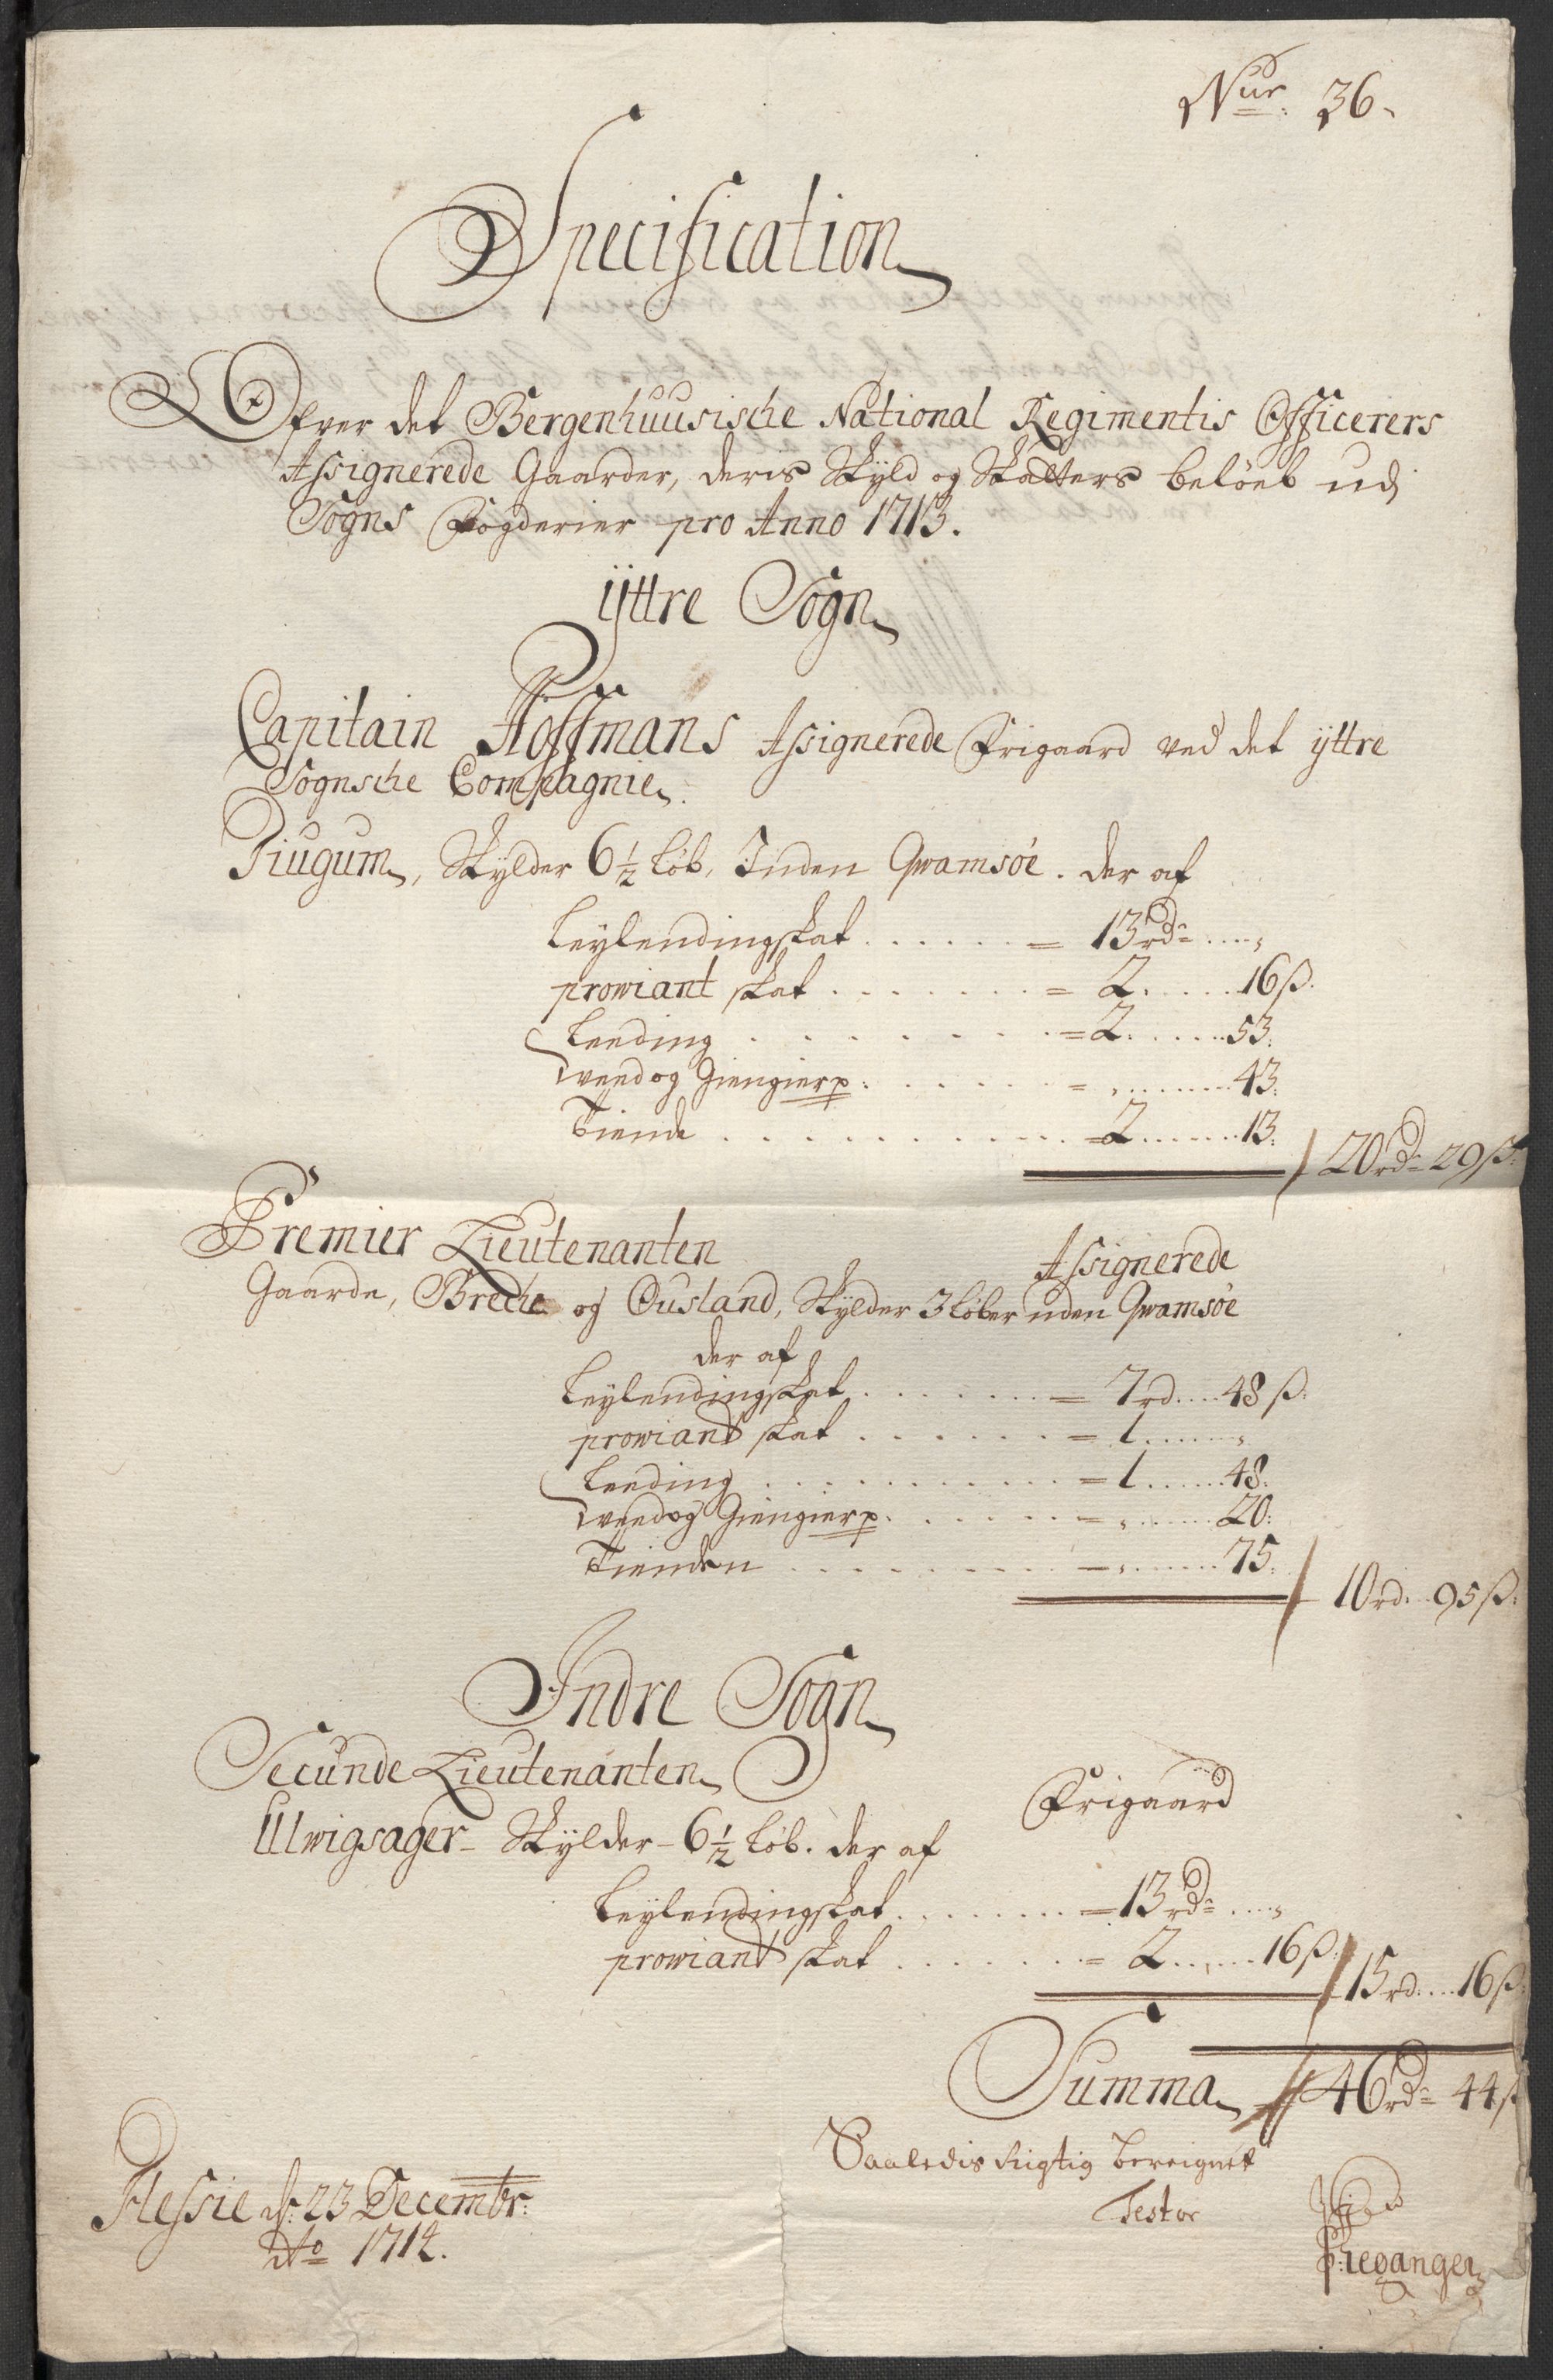 Nur. 36.
Specification
Ofver det Bergenhuusische National Regimentis Officerers
Assignerede Gaarder, deris Skyld og Skatters beløeb udj
Sogns Fogderier pro Anno 1713.
ÿttre Sogn
Capitain Hoffmans Assignerede Frigaard ved det ÿttre
Sognsche Compagnie.
Tiugum, Skÿlder 6½ Løb, Inden Qvamsøe. der af
Leÿlendingskat . . . . . . = 13 rdr ....,
prowiant skat . . . . . . . = 2 ..... 16 ß.
Leeding . . . . . . . . = 2 ...... 53.
weed og Giengierp. . . . . . = , ....... 43.
Tiende . . . . . . . . . . . = 2 ....... 13.
20 rdr 29 ß.
Premier Lieutenanten Assignerede
Gaarde, Breche og Ousland, Skÿlder 3 Løber uden Qvamsøe
der af
Leÿlendingskat . . . . . . = 7 rd .... 48 ß.
prowiand skat . . . . . . = 1 ......,
Leeding . . . . . . . . . . = 1 ...... 48.
weed og Giengierp. . . . . . = , ...... 20.
Tienden . . . . . . . . . = , ...... 75.
10 rd. 95 ß.
Indre Sogn
Secunde Lieutenanten Frigaard
Ulwigsager - Skÿlder - 6½ Løb. der af
Leÿlendingskat . . . . . . . = 13 rdr ....,
prowiand skat . . . . . . . = 2 ...... 16 ß.
15 rd .... 16 ß
Summa 46 rdr 44 ß
Saaledis Rigtig bereignet
Testor
Flessie d. 23 Decembr.
Ao 1714.